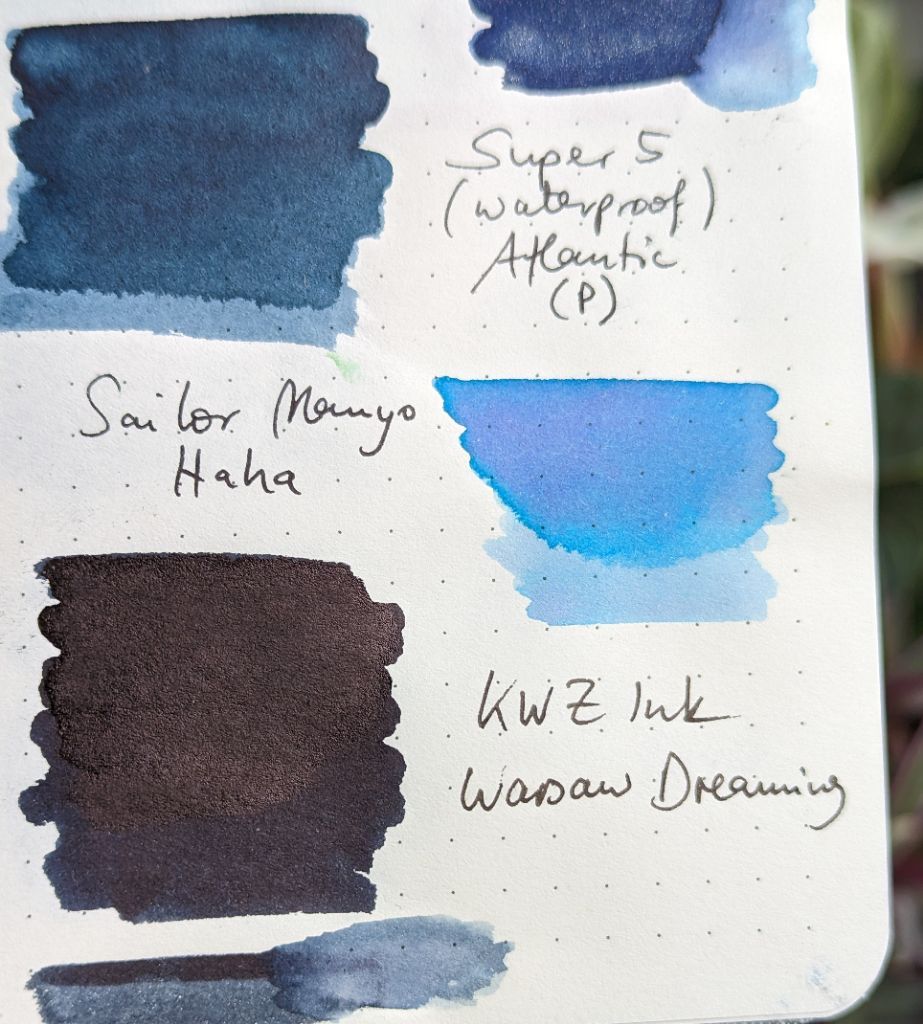 Super 5
(waterproof)
Atlantic
(P)
Sailor Manyo
Haha
KWZ Ink
Warsaw Dreaming